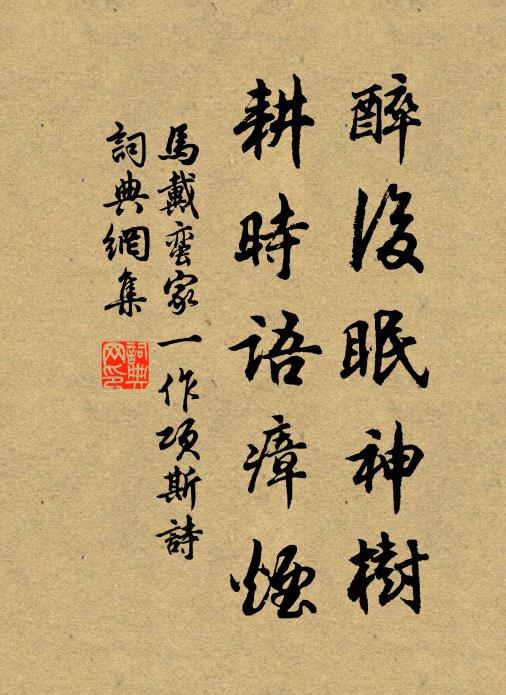 醉後眠神樹
耕時語瘴煙
馬戴蠻家一作項斯詩
詞典網集
詞典網印